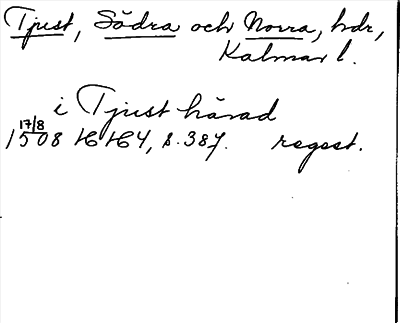 Tjust, Södra och Norra, hdr,
Kalmar l.
i Tjust härad
17/8
1508 HH 64, s. 387. regest.